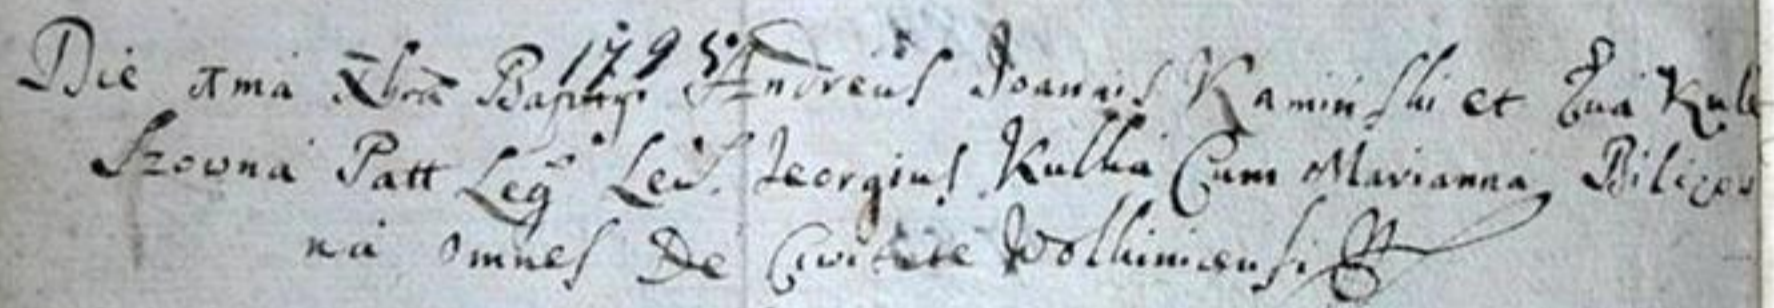 Die 1ma Xbris Baptyz: 1795 Andreas Joannis Kaminski et Eva Kule
szowna Patt Leg: Lev: Georgius Kulka Cum Marianna Bilizow
na omnes De Civitate Wolhiniensi